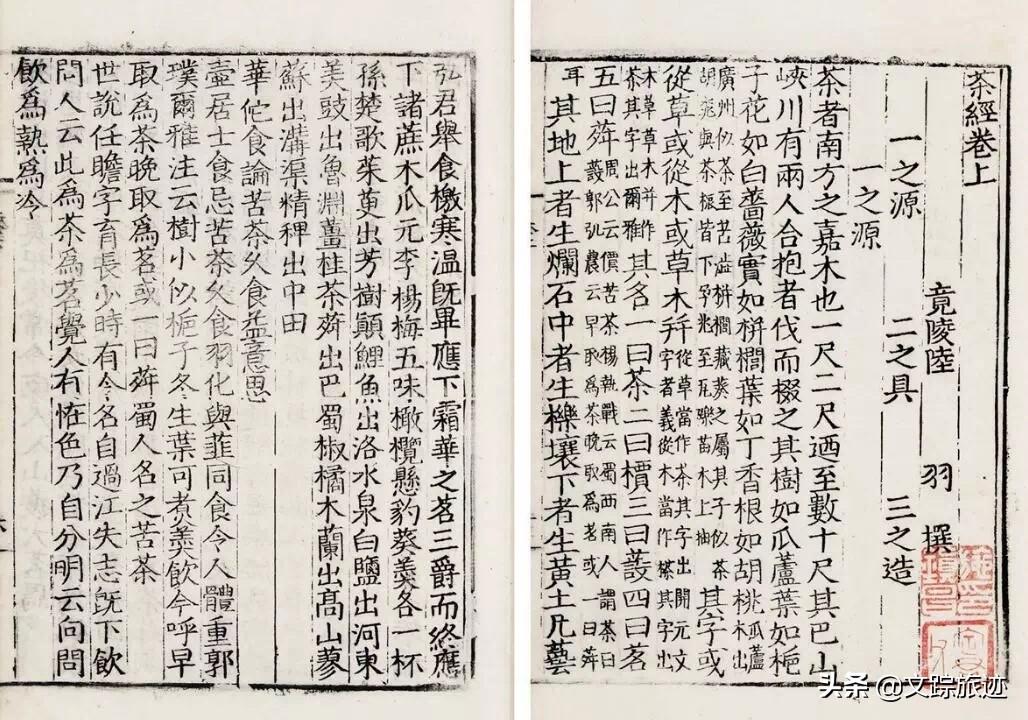 茶經卷上
竟陵陸 羽 撰
一之源 二之具 三之造
一之源
茶者南方之嘉木也一尺二尺迺至數十尺其巴山
峽川有兩人合抱者伐而掇之其樹如瓜蘆葉如梔
子花如白薔薇實如栟櫚葉如丁香根如胡桃瓜蘆木出
廣州似茶至苦澁栟櫚蒲葵之屬其子似茶胡桃與茶根皆下孕兆至瓦礫苗木上抽其字或
從草或從木或草木并從草當作茶其字出開元文字者義從木當作搽其字出
木草草木并作茶其字出爾雅其名一曰茶二曰檟三曰蔎四曰茗
五曰荈周公云檟苦茶楊執戟云蜀西南人謂茶曰蔎郭弘農云早取為茶晚取為茗或一曰荈
耳其地上者生爛石中者生櫟壤下者生黃土凡藝
弘君舉食檄寒溫旣畢應下霜華之茗三爵而終應
下諸蔗木瓜元李楊梅五味橄欖懸豹葵羹各一杯
孫楚歌茱萸出芳樹顚鯉魚出洛水泉白鹽出河東
美豉出魯淵薑桂茶荈出巴蜀椒橘木蘭出高山蓼
蘇出溝渠精稗出中田
華佗食論苦茶久食益意思
壺居士食忌苦茶久食羽化與韭同食令人體重郭
璞爾雅注云樹小似梔子冬生葉可煮羹飲今呼早
取為茶晚取為茗或一曰荈蜀人名之苦茶
世說任瞻字育長少時有令名自過江失志旣下飲
問人云此為茶為茗覺人有恠色乃自分明云向問
飲為熱為冷
头条 @文踪旅迹